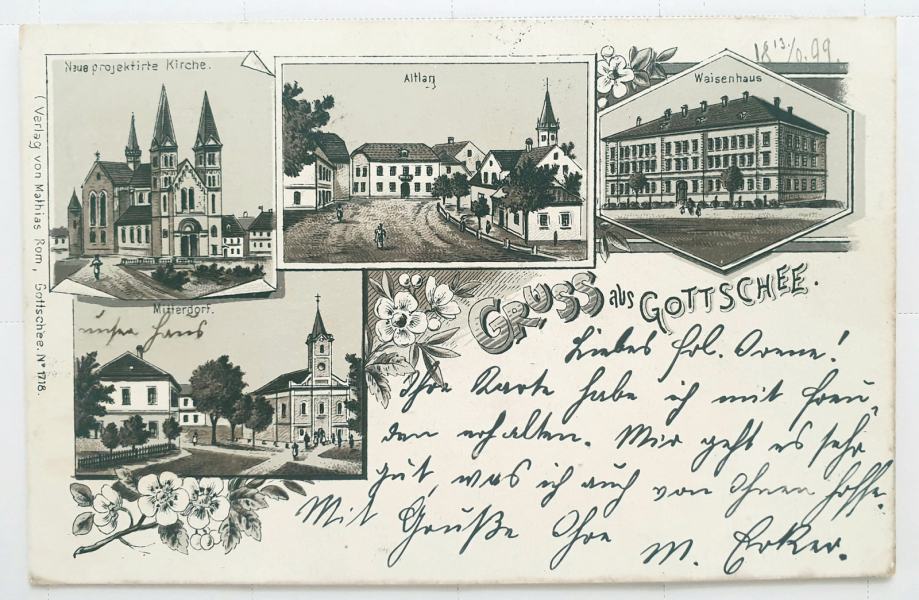 Neue projektirte Kirche.
Altlag
Waisenhaus
18 13./6. 99.
(Verlag von Mathias Rom, Gottschee. Nº 1718.
Mitterdorf.
unser Haus
GRUSS aus GOTTSCHEE.
Liebes Frl. Irene!
Ihre Karte habe ich mit Freu„
den erhalten. Mir geht es sehr
gut, was ich auch von Ihnen hoffe.
Mit Grüße Ihre
M. Erker.